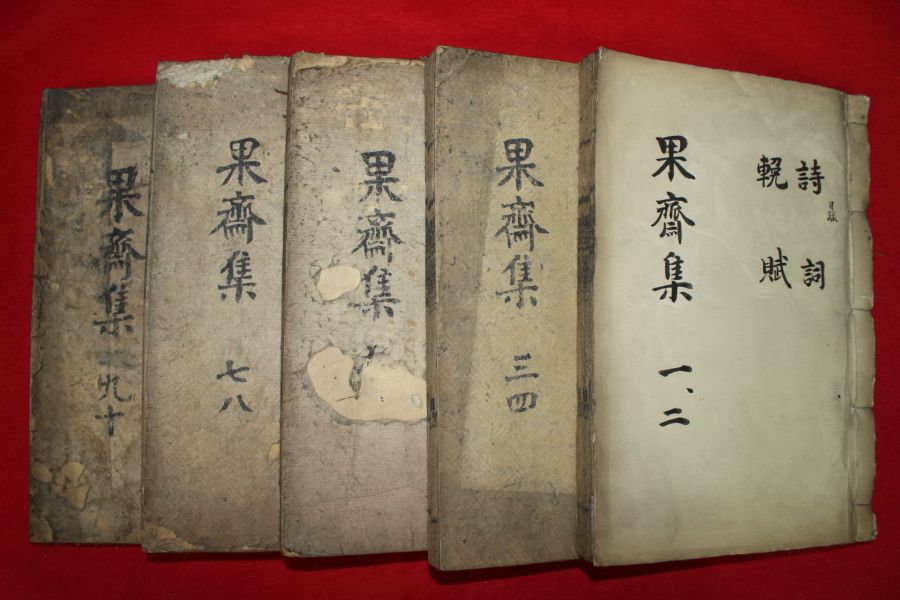 詩 詞
目錄
輓 賦
果齋集 一、二
果齋集 三四
果齋集
果齋集 七八
果齋集 九十